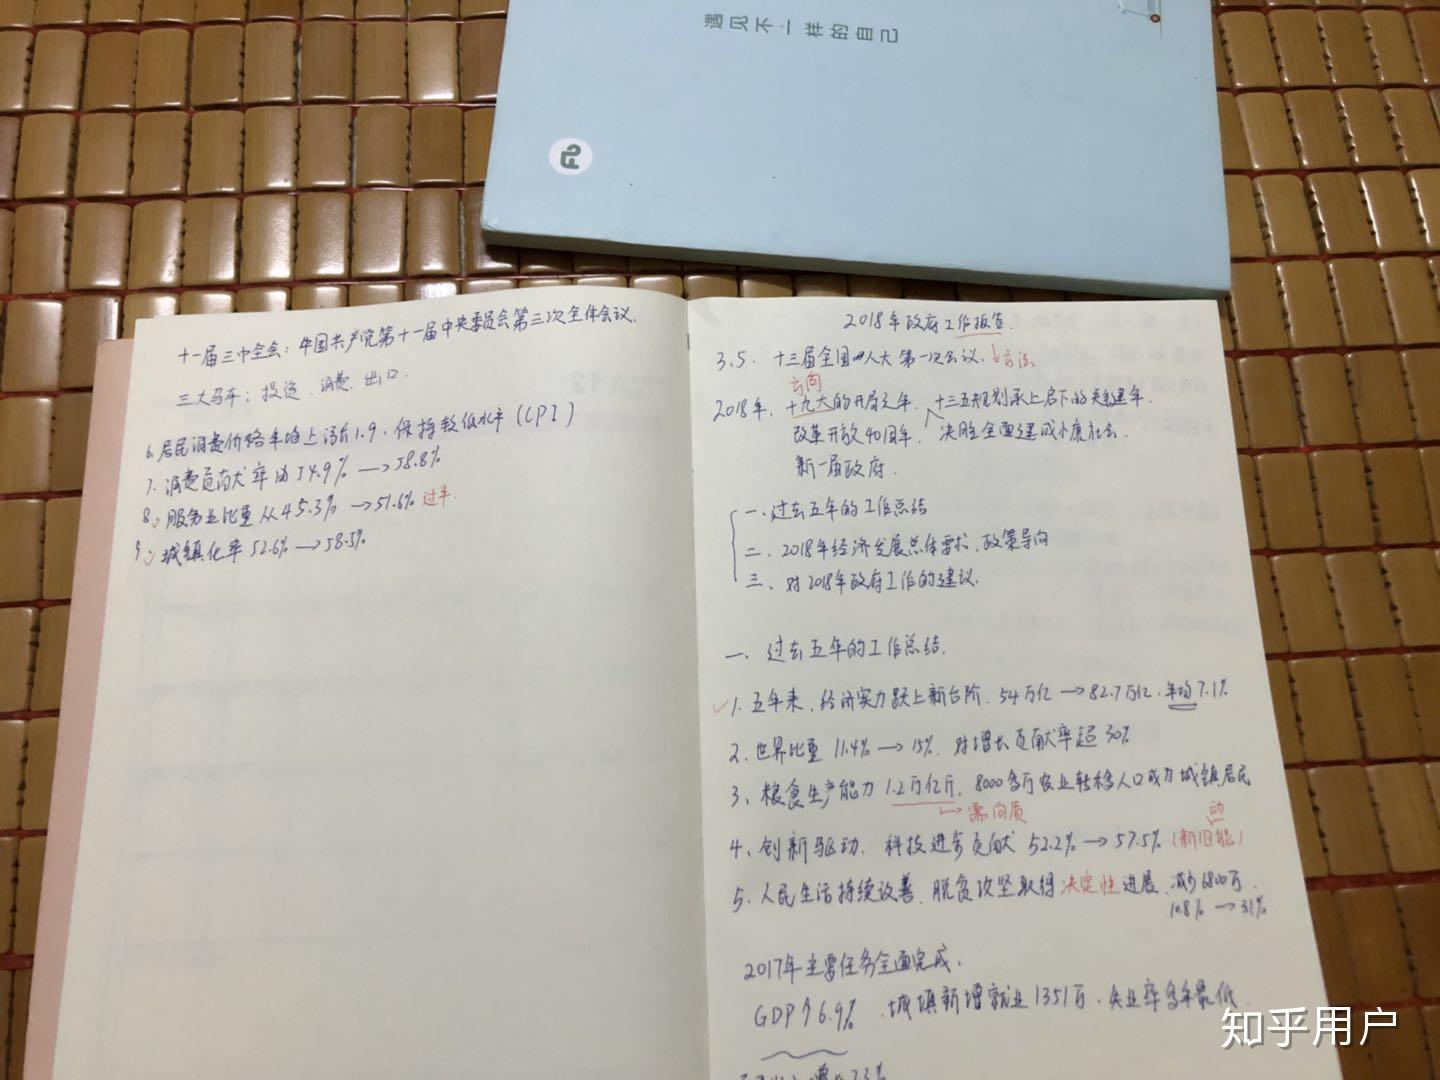 遇见不一样的自己
十一届三中全会：中国共产党第十一届中央委员会第三次全体会议.
三大马车：投资.消费.出口.
6.居民消费价格年均上涨1.9.保持较低水平(CPI)
7.消费贡献率由54.9%→58.8%
8.服务业比重从45.3%→51.6% 过半.
9.城镇化率52.6%→58.5%
2018年政府工作报告.
3.5. 十三届全国人大第一次会议.↓方法
方向
2018年，十九大的开局之年.十三五规划承上启下的关键年.
改革开放40周年. 决胜全面建成小康社会.
新一届政府.
一.过去五年的工作总结
二、2018年经济发展总体要求、政策导向
三、对2018年政府工作的建议.
一、过去五年的工作总结.
1.五年来.经济实力跃上新台阶. 54万亿→82.7万亿.年均7.1%
2.世界比重 11.4%→15%. 对增长贡献率超30%
3、粮食生产能力1.2万亿斤. 8000多万农业转移人口成为城镇居民
→需向质
动
4、创新驱动. 科技进步贡献 52.2%→57.5%(新旧能)
5.人民生活持续改善.脱贫攻坚取得决定性进展.减少6800万.
10.8%→3.1%
2017年主要任务全面完成.
GDP↑6.9%.城镇新增就业1351万.失业率多年最低
知乎用户